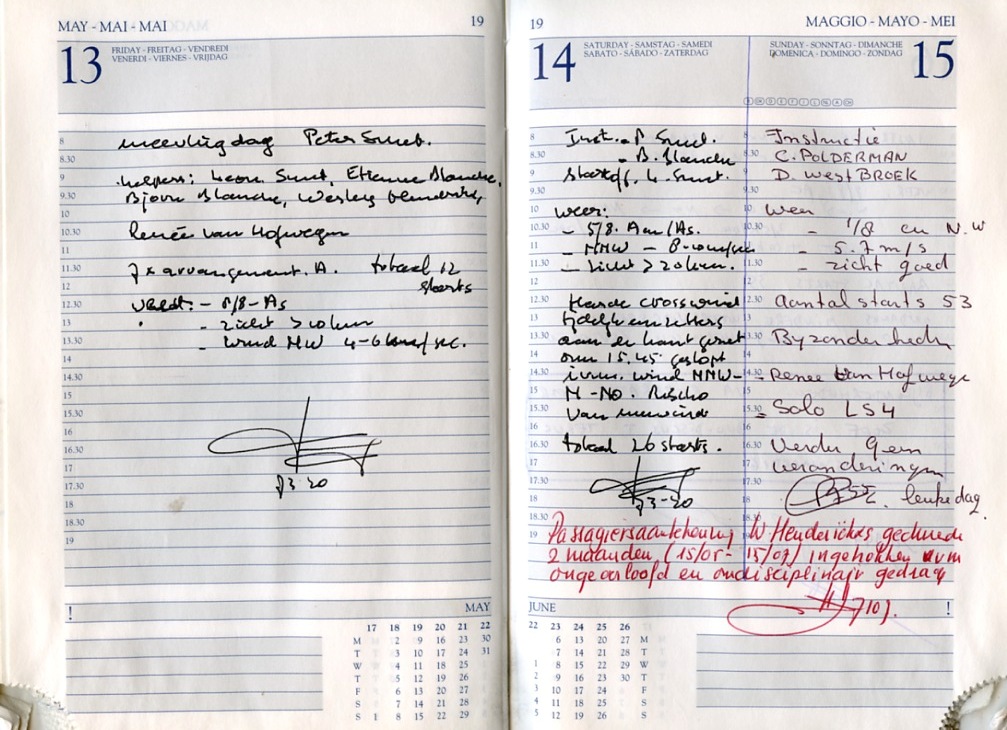 MAY - MAI - MAI 19
13 FRIDAY - FREITAG - VENDREDI
VENERDI - VIERNES - VRIJDAG
8 meevliegdag Peter Smet.
8.30
9 helpers: Leon Smet, Etienne Blanche,
9.30 Bjorn Blanche, Wesley
10
10.30 Renée van Hofwegen
11
11.30 7x arrangement A. totaal 12
12 starts
12.30 - 5/8 - As
13 - zicht > 10 km
13.30 - wind NW 4-6 /sec.
14
14.30
15
15.30
16
16.30
17
17.30
18
18.30
19
! MAY
17 18 19 20 21 22
M 2 9 16 23 30
T 3 10 17 24 31
W 4 11 18 25
T 5 12 19 26
F 6 13 20 27
S 7 14 21 28
S 1 8 15 22 29
19
14 SATURDAY - SAMSTAG - SAMEDI
SABATO - SÁBADO - ZATERDAG
8 Inst. - P Smet.
8.30 - B. Blanche
9 Startoff. L. Smet.
9.30
10 weer:
10.30 - 5/8. /As.
11 - NNW -
11.30 - zicht > 20 km.
12
12.30 Harde crosswind
13
13.30 aan de
14 om 15.45 gestopt
14.30 i.v.m. wind NNW-
15 N - NO. Risico
15.30 van
16
16.30 totaal 26 starts.
17
17.30
18
18.30
19
MAGGIO - MAYO - MEI
SUNDAY - SONNTAG - DIMANCHE 15
DOMENICA - DOMINGO - ZONDAG
8 Instructie
8.30 C. POLDERMAN
9 D. WestBROEK
9.30
10 Weer
10.30 - 1/8 cu N.W
11 - 5.7 m/s
11.30 - zicht goed
12.30 Aantal starts 53
13.30 Byzonderheden
14.30 - Renee van Hofwege
15.30 - Solo LS4
16.30 Verder Geen
17 veranderingen
leuke dag.
18.30
Passagiersaantekening W Hendrickx gedurende
2 maanden (15/05 - 15/07) ingetrokken ivm
ongeoorloofd en ondisciplinair gedrag
JUNE !
22 23 24 25 26
6 13 20 27 M
7 14 21 28 T
1 8 15 22 29 W
2 9 16 23 30 T
3 10 17 24 F
4 11 18 25 S
5 12 19 26 S